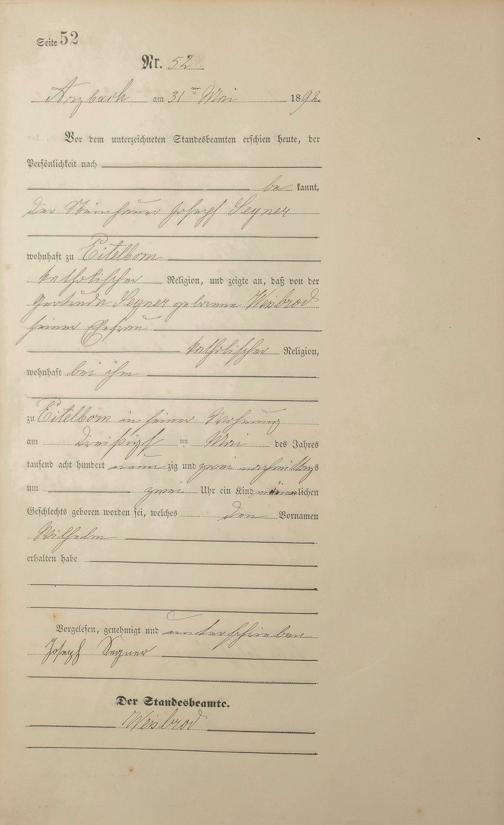 Seite 52
Nr. 52
Arzbach am 31ten Mai 1892
Vor dem unterzeichneten Standesbeamten erschien heute, der
Persönlichkeit nach
be kannt,
der Steinhauer Joseph Segner
wohnhaft zu Eitelborn
katholischer Religion, und zeigte an, daß von der
Gertruda Segner geborene Weisbrod
seiner Ehefrau
katholischer Religion,
wohnhaft bei ihm
zu Eitelborn in seiner Wohnung
am dreißigst ten Mai des Jahres
tausend acht hundert neun zig und zwei nachmittags
um zwei Uhr ein Kind männlichen
Geschlechts geboren worden sei, welches den Vornamen
Wilhelm
erhalten habe
Vorgelesen, genehmigt und unterschrieben
Joseph Segner
Der Standesbeamte.
Weisbrod